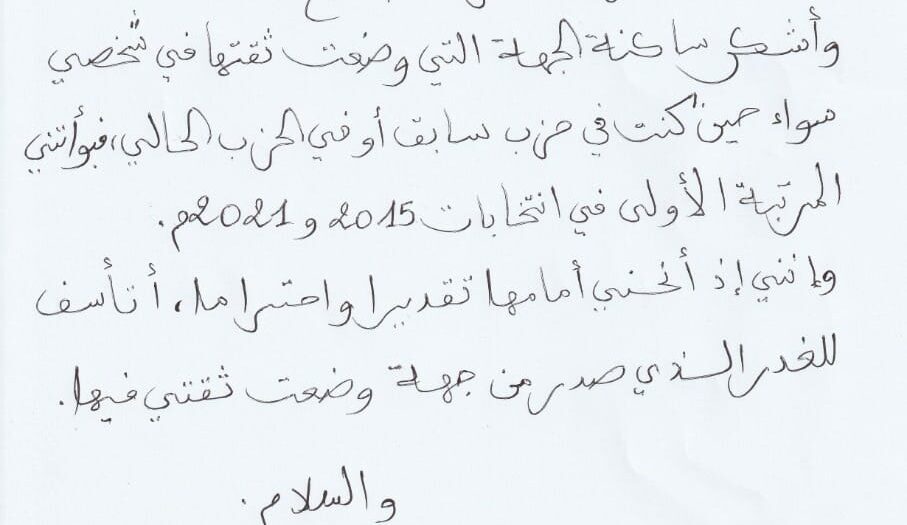 وأشكر ساكنة الجهة التي وضعت ثقتها في شخصي
سواء حين كنت في حزب سابق أو في الحزب الحالي، فبوأتني
المرتبة الأولى في انتخابات 2015 و 2021م.
وإنني إذ أنحني أمامها تقديرا واحتراما، أتأسف
للغدر الذي صدر من جهة وضعت ثقتي فيها.
والسلام.